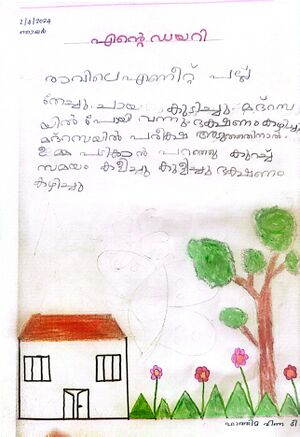 2/4/2024
ഞായർ
എന്റെ ഡയറി
രാവിലെ എണീറ്റ് പല്ല്
തേച്ചു. ചായ കുടിച്ചു. മദ്റസ
യിൽ പോയി വന്നു. ഭക്ഷണം കഴിച്ചു
മദ്റസയിൽ പരീക്ഷ അടുത്തതിനാൽ
ഉമ്മ പഠിക്കാൻ പറഞ്ഞു കുറച്ച്
സമയം കളിച്ചു കുളിച്ചു ഭക്ഷണം
കഴിച്ചു
ഫാത്തിമ